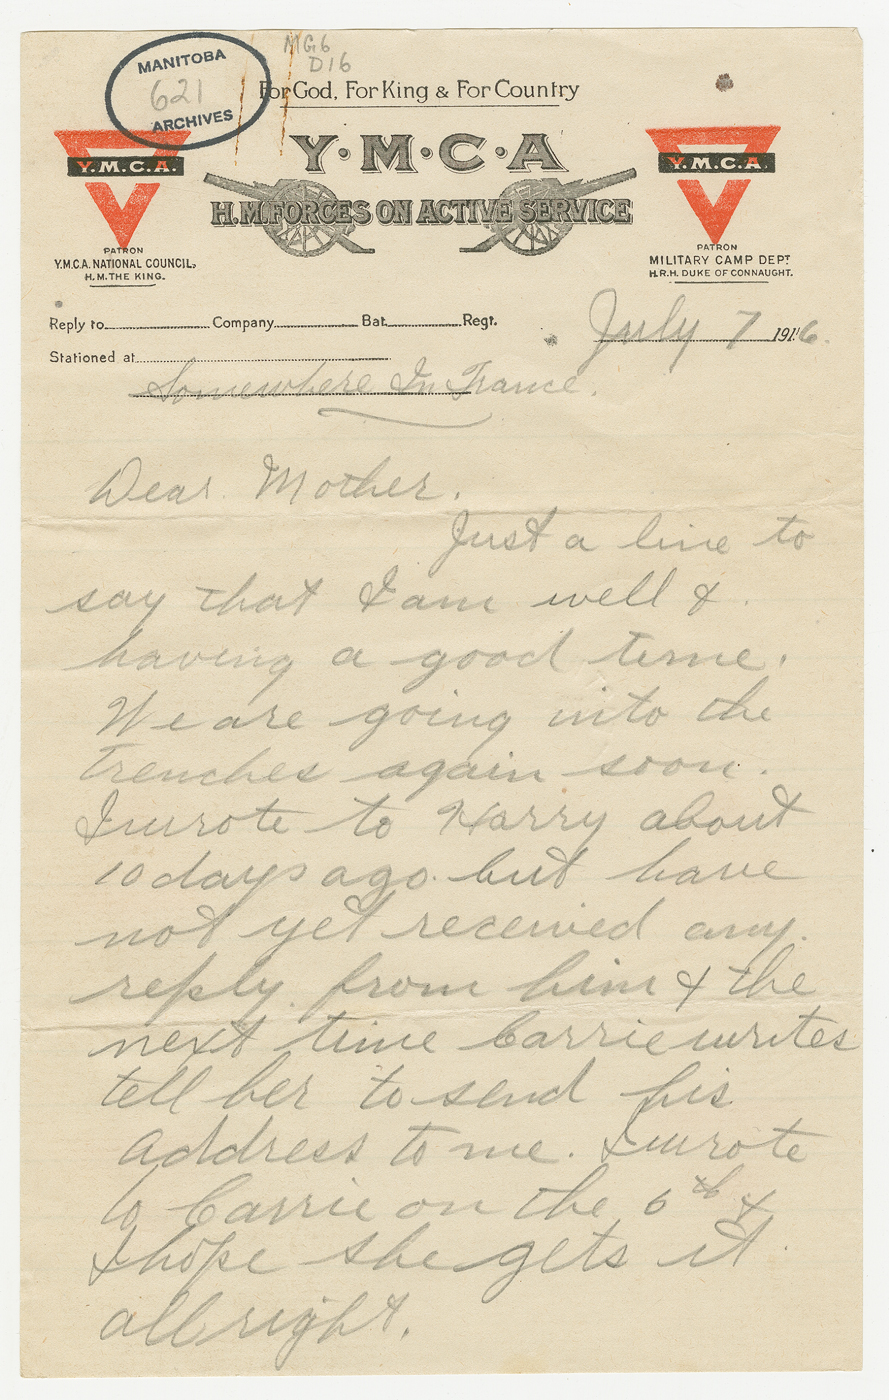 MANITOBA
621
ARCHIVES
MG6
D16
For God, For King & For Country
Y·M·C·A
H.M. FORCES ON ACTIVE SERVICE
Y.M.C.A.
PATRON
Y.M.C.A. NATIONAL COUNCIL,
H.M. THE KING.
Y.M.C.A.
PATRON
MILITARY CAMP DEPT
H.R.H. DUKE OF CONNAUGHT.
Reply to Company Bat. Regt.
July 7 1916.
Stationed at
Somewhere In France.
Dear Mother.
Just a line to
say that I am well &
having a good time.
We are going into the
trenches again soon.
I wrote to Harry about
10 days ago but have
not yet received any
reply from him & the
next time Carrie writes
tell her to send his
address to me. I wrote
to Carrie on the 6th &
I hope she gets it
all right.